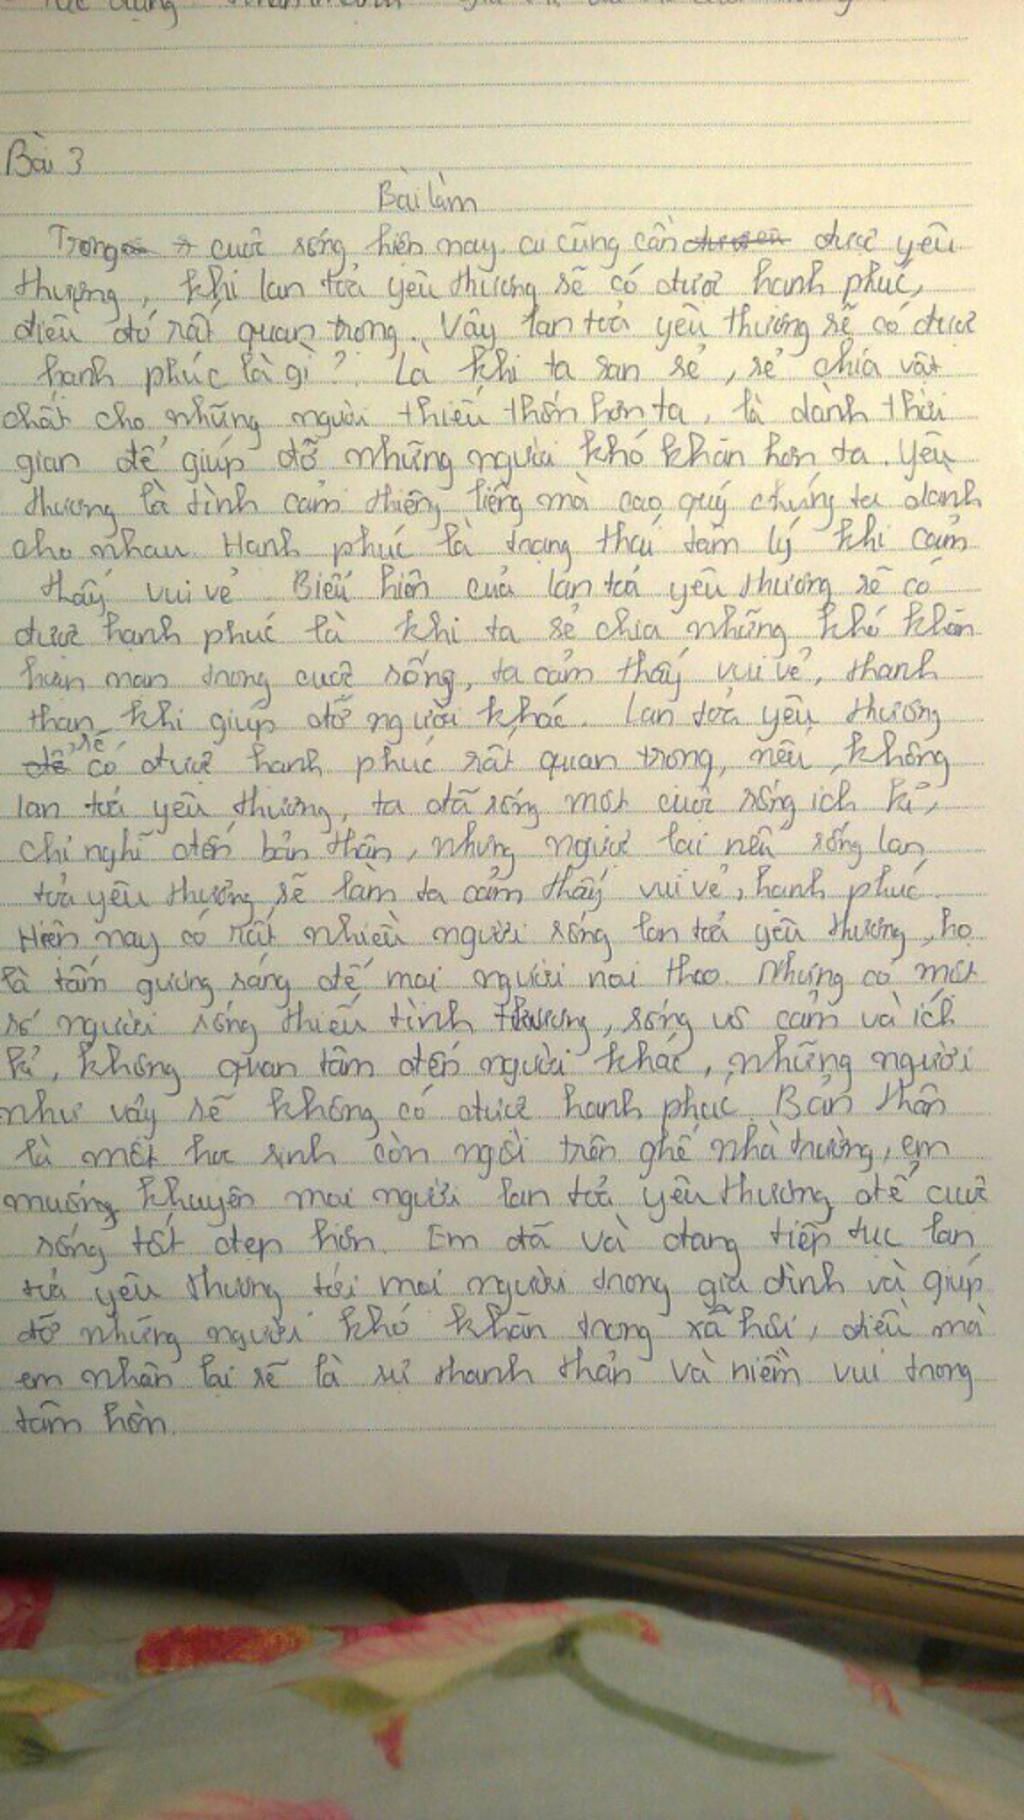 Bài 3
Bài làm
Trong cuộc sống hiện nay ai cũng cần được yêu
thương, khi lan toả yêu thương sẽ có được hạnh phúc,
điều đó rất quan trọng. Vậy lan toả yêu thương sẽ có được
hạnh phúc là gì? Là khi ta san sẻ, sẻ chia vật
chất cho những người thiếu thốn hơn ta, là dành thời
gian để giúp đỡ những người khó khăn hơn ta. Yêu
thương là tình cảm thiêng liêng mà cao quý chúng ta dành
cho nhau. Hạnh phúc là trạng thái tâm lý khi cảm
thấy vui vẻ. Biểu hiện của lan toả yêu thương sẽ có
được hạnh phúc là khi ta sẻ chia những khó khăn
hoạn nạn trong cuộc sống, ta cảm thấy vui vẻ, thanh
thản khi giúp đỡ người khác. Lan toả yêu thương
sẽ có được hạnh phúc rất quan trọng, nếu không
lan toả yêu thương, ta đã sống một cuộc sống ích kỉ,
chỉ nghĩ đến bản thân, nhưng ngược lại nếu sống lan
toả yêu thương sẽ làm ta cảm thấy vui vẻ, hạnh phúc.
Hiện nay có rất nhiều người sống lan toả yêu thương, họ
là tấm gương sáng để mọi người noi theo. Nhưng có một
số người sống thiếu tình thương, sống vô cảm và ích
kỉ, không quan tâm đến người khác, những người
như vậy sẽ không có được hạnh phúc. Bản thân
là một học sinh còn ngồi trên ghế nhà trường, em
muống khuyên mọi người lan toả yêu thương để cuộc
sống tốt đẹp hơn. Em đã và đang tiếp tục lan
toả yêu thương tới mọi người trong gia đình và giúp
đỡ những người khó khăn trong xã hội, điều mà
em nhận lại sẽ là sự thanh thản và niềm vui trong
tâm hồn.